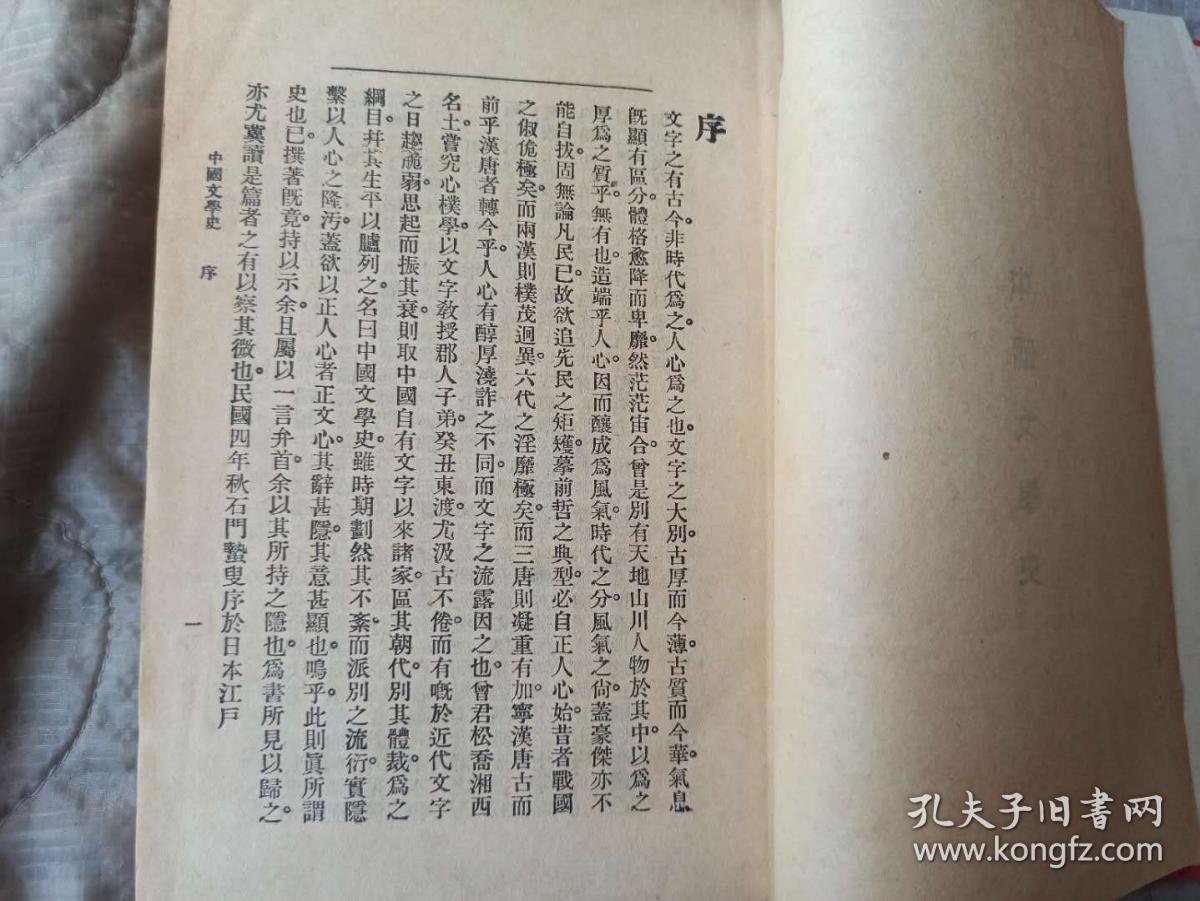 序
文字之有古今。非時代爲之。人心爲之也。文字之大別。古厚而今薄。古質而今華。氣息
旣顯有區分。體格愈降而卑靡。然茫茫宙合。曾是別有天地山川人物於其中。以爲之
厚爲之質乎。無有也。造端乎人心。因而釀成爲風氣。時代之分。風氣之尙。蓋豪傑亦不
能自拔。固無論凡民已。故欲追先民之矩矱。摹前哲之典型。必自正人心始。昔者戰國
之俶佹極矣。而兩漢則樸茂迥異。六代之淫靡極矣。而三唐則凝重有加。寧漢唐古而
前乎漢唐者轉今乎。人心有醇厚澆詐之不同。而文字之流露因之也。曾君松喬湘西
名士。嘗究心樸學。以文字敎授郡人子弟。癸丑東渡。尤汲古不倦。而有嘅於近代文字
之日趨蕪弱。思起而振其衰。則取中國自有文字以來諸家。區其朝代。別其體裁。爲之
綱目。幷其生平以臚列之。名曰中國文學史。雖時期劃然其不紊。而派別之流衍。實隱
繫以人心之隆汚。蓋欲以正人心者正文心。其辭甚隱。其意甚顯也。嗚乎。此則眞所謂
史也已。撰著旣竟。持以示余。且屬以一言弁首。余以其所持之隱也。爲書所見以歸之。
亦尤冀讀是篇者之有以察其微也。民國四年秋石門蟄叟序於日本江戶
中國文學史 序 一
孔夫子旧书网
www.kongfz.com